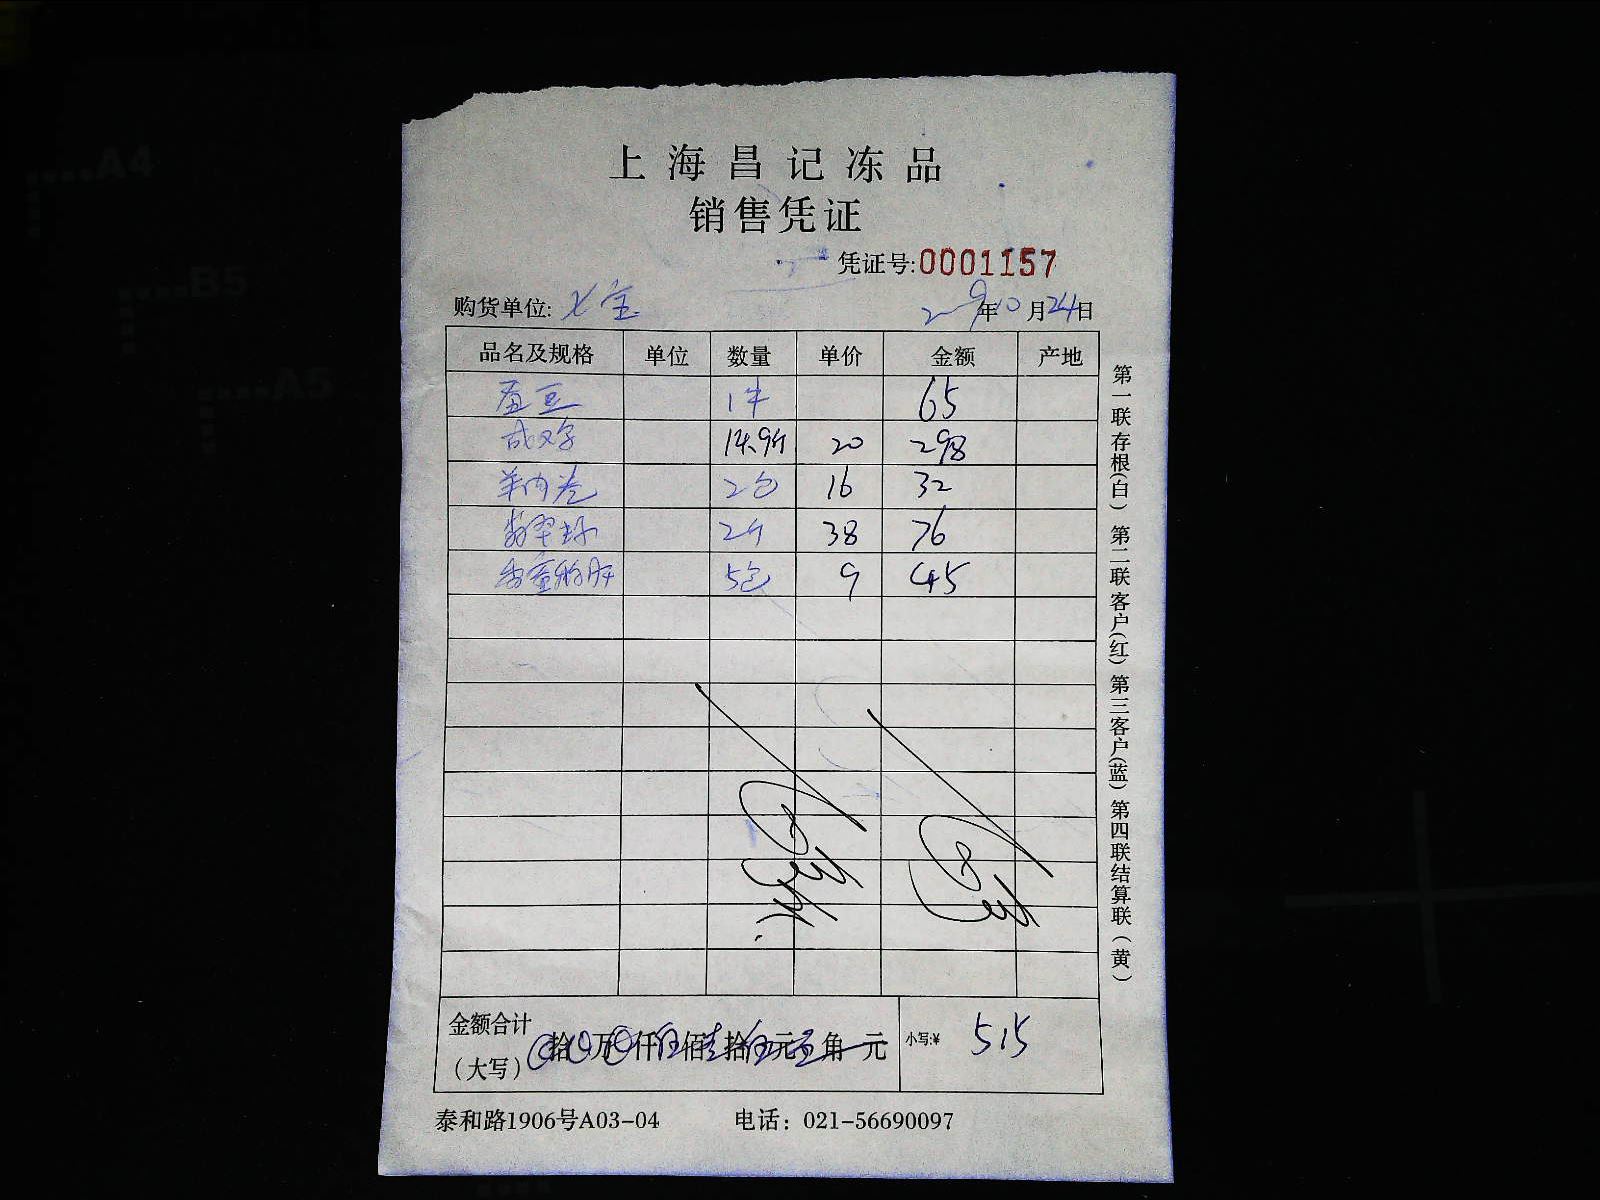 上海昌记冻品
销售凭证
凭证号:0001157
购货单位: 七宝 年10月24日
品名及规格 单位 数量 单价 金额 产地
1件 65
14.9斤 20 298
羊肉卷 2包 16 32
2斤 38 76
5包 9 45
金额合计
(大写) 拾 万 仟伍佰壹拾伍元 角 元 小写:¥ 515
泰和路1906号A03-04 电话：021-56690097
第一联存根(白) 第二联客户(红) 第三客户(蓝) 第四联结算联(黄)
A4
B5
A5